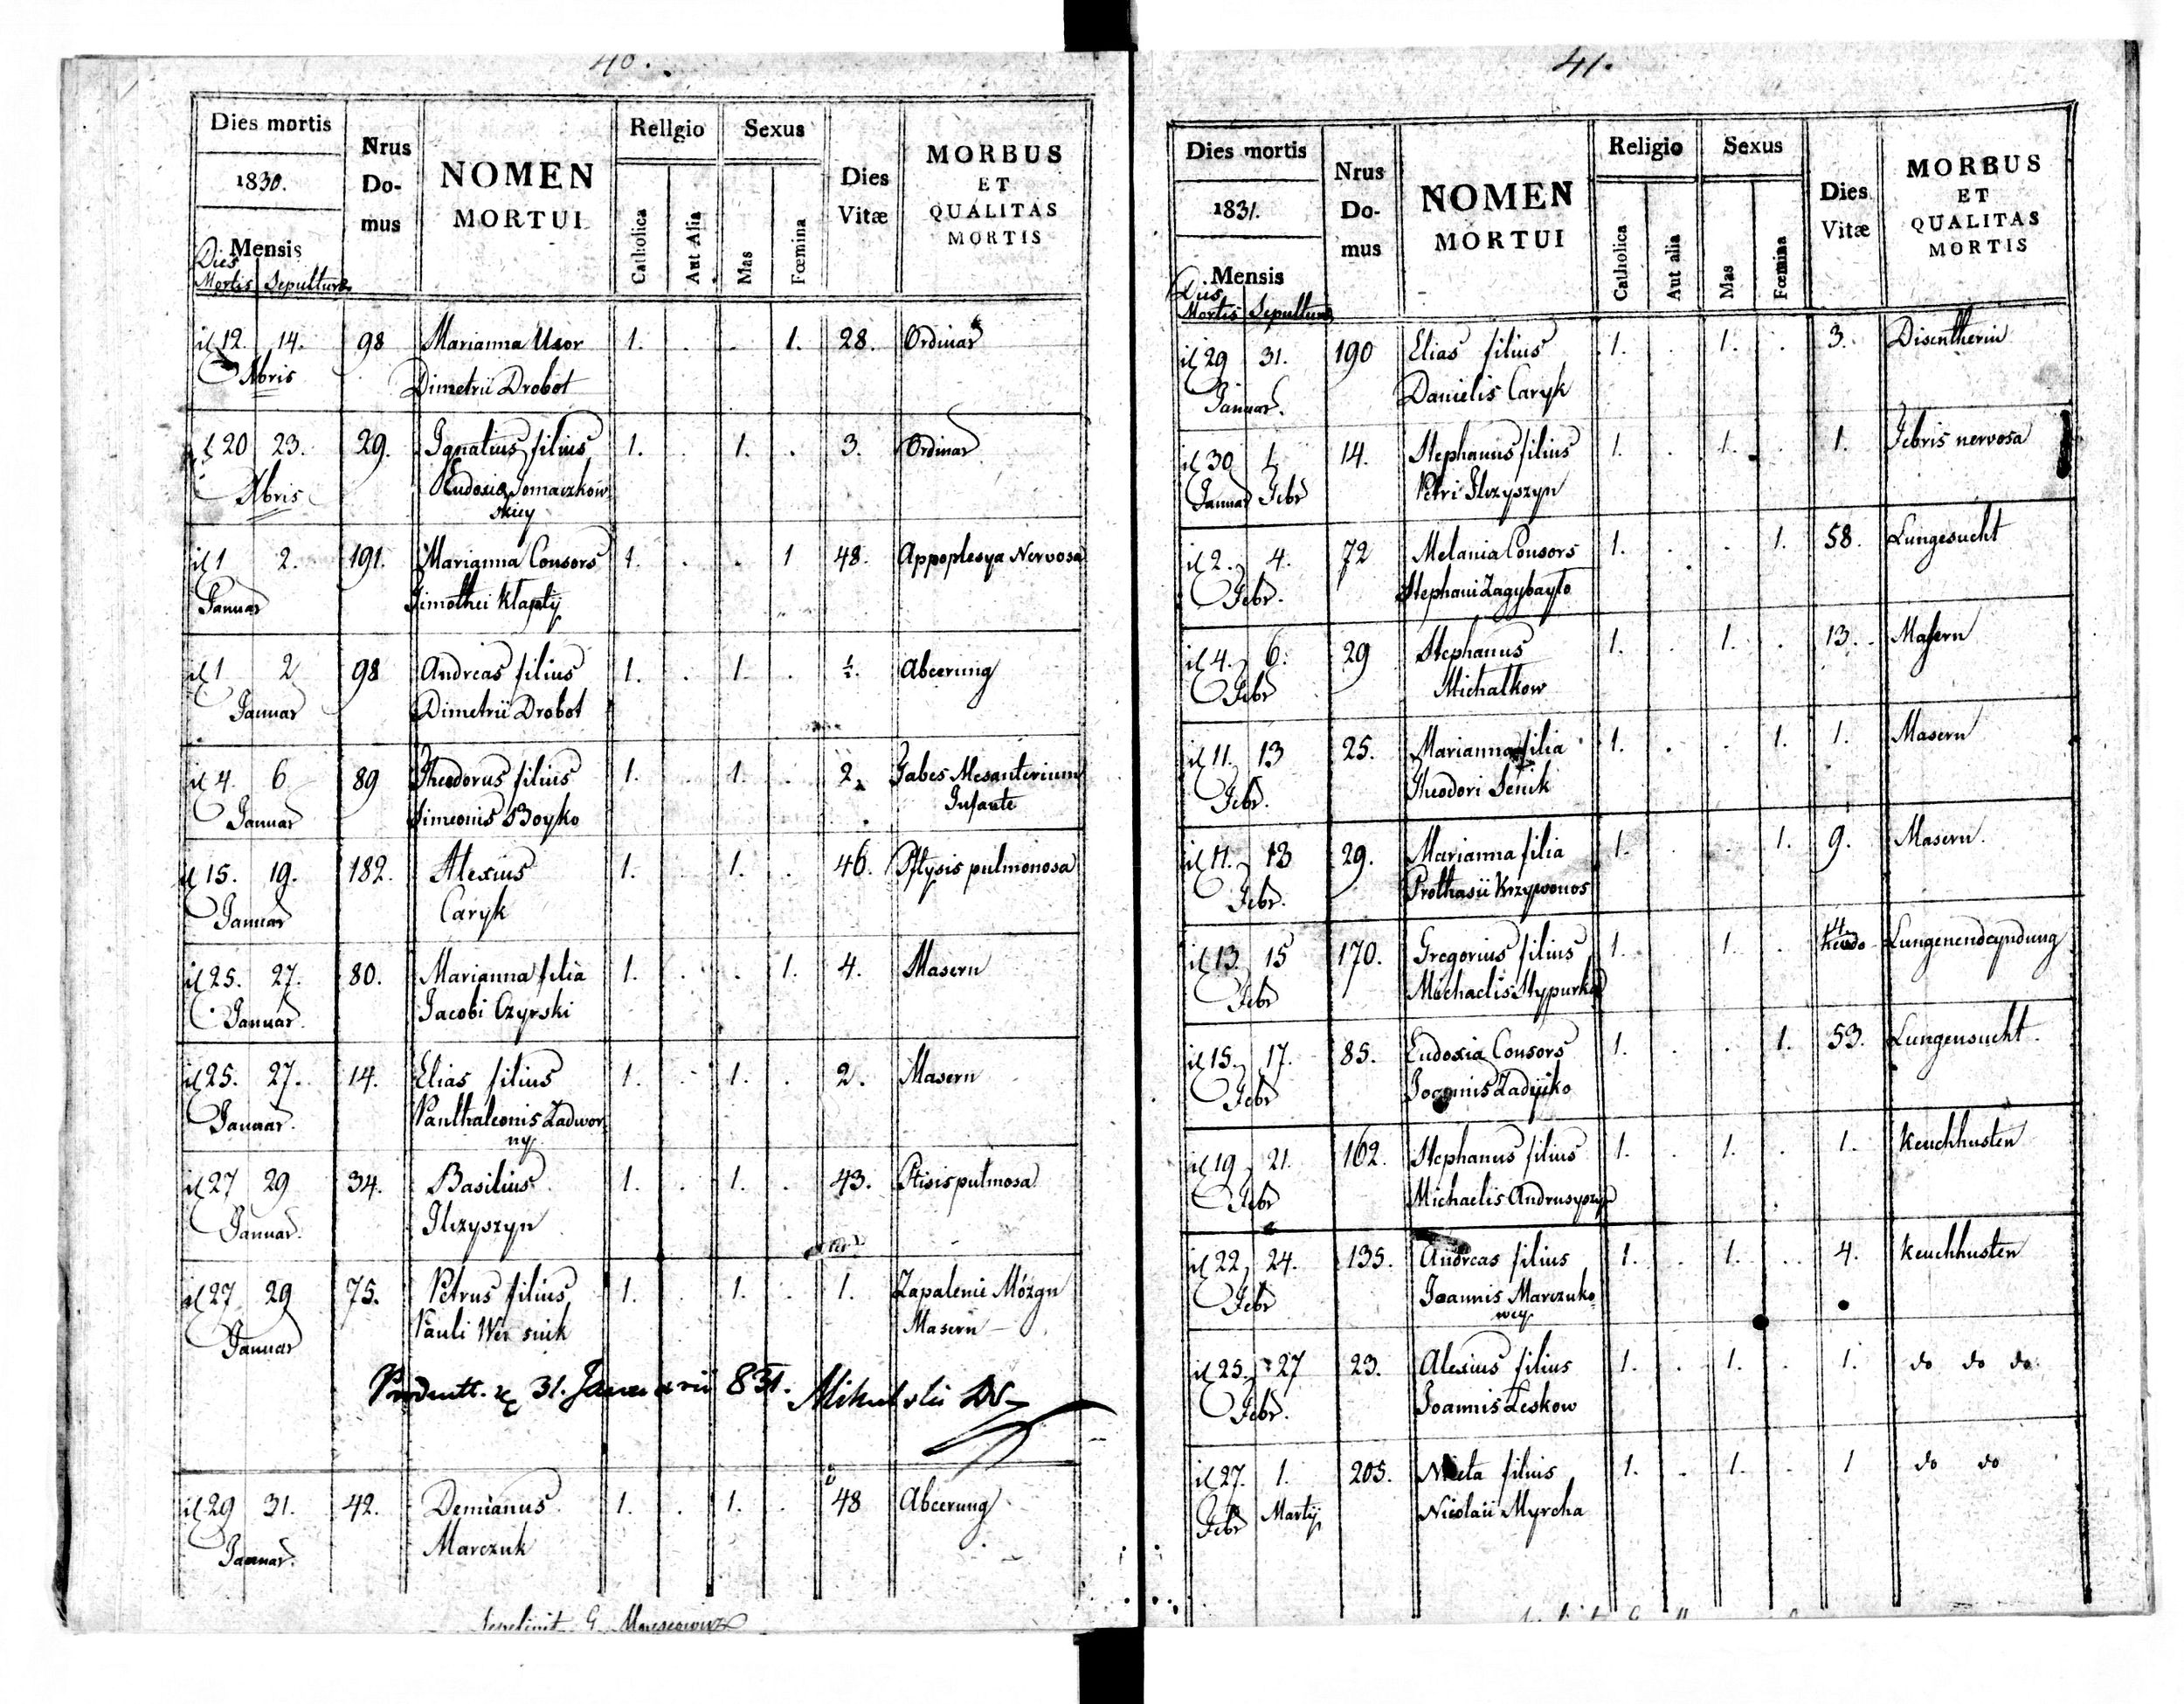 40.
Dies mortis
1830.
Mensis
Dies
Mortis Sepulturæ
Nrus
Do-
mus
NOMEN
MORTUI
Religio
Catholica
Aut Alia
Sexus
Mas
Fœmina
Dies
Vitæ
MORBUS
ET
QUALITAS
MORTIS
12. 14. 98 Marianna Uxor 1. . . 1. 28. Ordinar
Xbris Dimetrii Drobot
20 23. 29. Ignatius filius 1. . 1. . 3. Ordinar
Xbris Eudoxia Tomaczkow
skiey
1 2. 191. Marianna Consors 1. . . 1 48. Appoplexya Nervosa
Januar Timothei Klaptij
1 2 98 Andreas filius 1. . 1. . ½. Abcerung
Januar Dimetrii Drobot
4. 6 89 Theodorus filius 1. . 1. . 2. Tabes Mesanterium
Januar Simeonis Boyko Infante
15. 19. 182. Alexius 1. . 1. . 46. Pftysis pulmonosa
Januar Caryk
25. 27. 80. Marianna filia 1. . . 1. 4. Masern
Januar. Jacobi Czyrski
25. 27. 14. Elias filius 1. . 1. . 2. Masern
Januar. Panthaleonis Zadwor
ny
27 29 34. Basilius 1. . 1. . 43. Ptisis pulmosa
Januar. Ilczyszyn
27 29 75. Petrus filius 1. . 1. . 1. Zapalenie Mózgu
Januar Pauli Masern
31. Januarii 831.
29 31. 42. Demianus 1. . 1. . 48 Abcerung
Januar. Marczuk
Sepelivit G
41.
Dies mortis
1831.
Mensis
Dies
Mortis Sepulturæ
Nrus
Do-
mus
NOMEN
MORTUI
Religio
Catholica
Aut alia
Sexus
Mas
Fœmina
Dies
Vitæ
MORBUS
ET
QUALITAS
MORTIS
29 31. 190 Elias filius 1. . 1. . 3. Disentherin
Januar. Danielis Caryk
30 1. 14. Stephanus filius 1. . 1. . 1. Febris nervosa
Januar Febr Petri Ilczyszyn
2. 4. 72 Melania Consors 1. . . 1. 58. Lungesucht
Febr. Stephani Zagybayło
4. 6. 29 Stephanus 1. . 1. . 13. Masern
Febr Michalkow
11. 13 25. Marianna filia 1. . . 1. 1. Masern
Febr. Theodori Senik
11. 13 29. Marianna filia 1. . . 1. 9. Masern.
Febr. Prothasii Krzywonos
13. 15 170. Gregorius filius 1. . 1. . 4 Lungenendcyndung
Febr Michaelis Stypurka
15. 17. 85. Eudoxia Consors 1. . . 1. 53. Lungensucht.
Febr Joannis Zadyiko
19 21. 162. Stephanus filius 1. . 1. . 1. Keuchhusten
Febr Michaelis Andrusyszyn
22 24. 135. Andreas filius 1. . 1. . 4. Keuchhusten
Febr Joannis Marczuko
wey
25. 27 23. Alexius filius 1. . 1. . 1. do do do.
Febr. Joannis Leskow
27. 1. 205. Nikita filius 1. . 1. . 1 do do
Febr Martij Nicolaii Myrcha